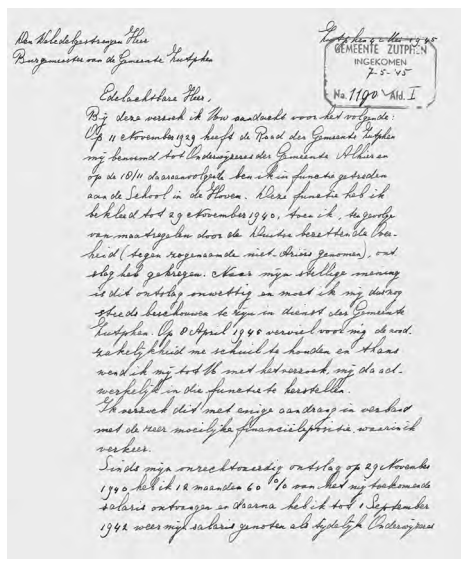 Den Weledelgestrengen Heer
Burgemeester van de Gemeente Zutphen
Zutphen, Mei 1945
GEMEENTE ZUTPHEN
INGEKOMEN
7-5-45
No. 1190 Afd. I
Edelachtbare Heer,
Bij deze verzoek ik Uw aandacht voor het volgende:
Op 11 November 1929 heeft de Raad der Gemeente Zutphen
mij benoemd tot Onderwijzeres der Gemeente Alhier en
op de 18/11 daaraanvolgende ben ik in functie getreden
aan de School in de Hoven. Deze functie heb ik
bekleed tot 29 November 1940, toen ik, tengevolge
van maatregelen door de Duitse bezettende Over-
heid (tegen zogenaamde niet-Ariers genomen), ont
slag heb gekregen. Naar mijn stellige mening
is dit ontslag onwettig en moet ik mij dus nog
steeds beschouwen te zijn in dienst der Gemeente
Zutphen. Op 8 April 1945 verviel voor mij de nood
zakelijkheid me schuil te houden en thans
wend ik mij tot U met het verzoek, mij daad-
werkelijk in die functie te herstellen.
Ik verzoek dit met enige aandrang in verband
met de zeer moeilijke financiële positie, waarin ik
verkeer.
Sinds mijn onrechtvaardig ontslag op 29 November
1940 heb ik 12 maanden 60 % van het mij toekomende
salaris ontvangen en daarna heb ik tot 1 September
1942 weer mijn salaris genoten als tijdelijk Onderwijzeres